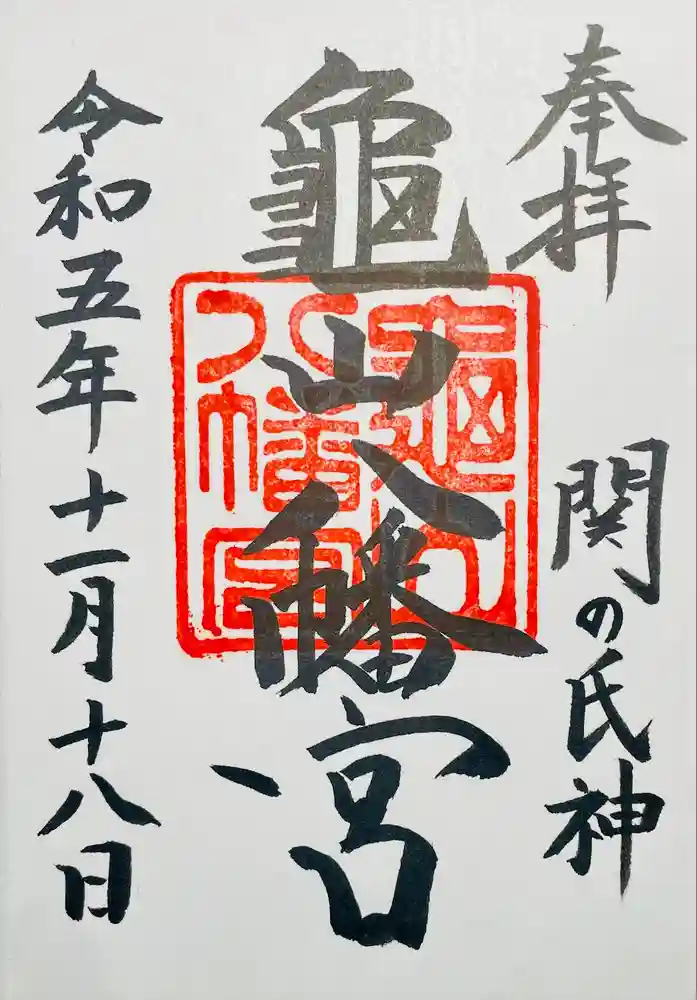 奉拝
関の氏神
龜山八幡宮
龜山八幡宮
令和五年十一月十八日